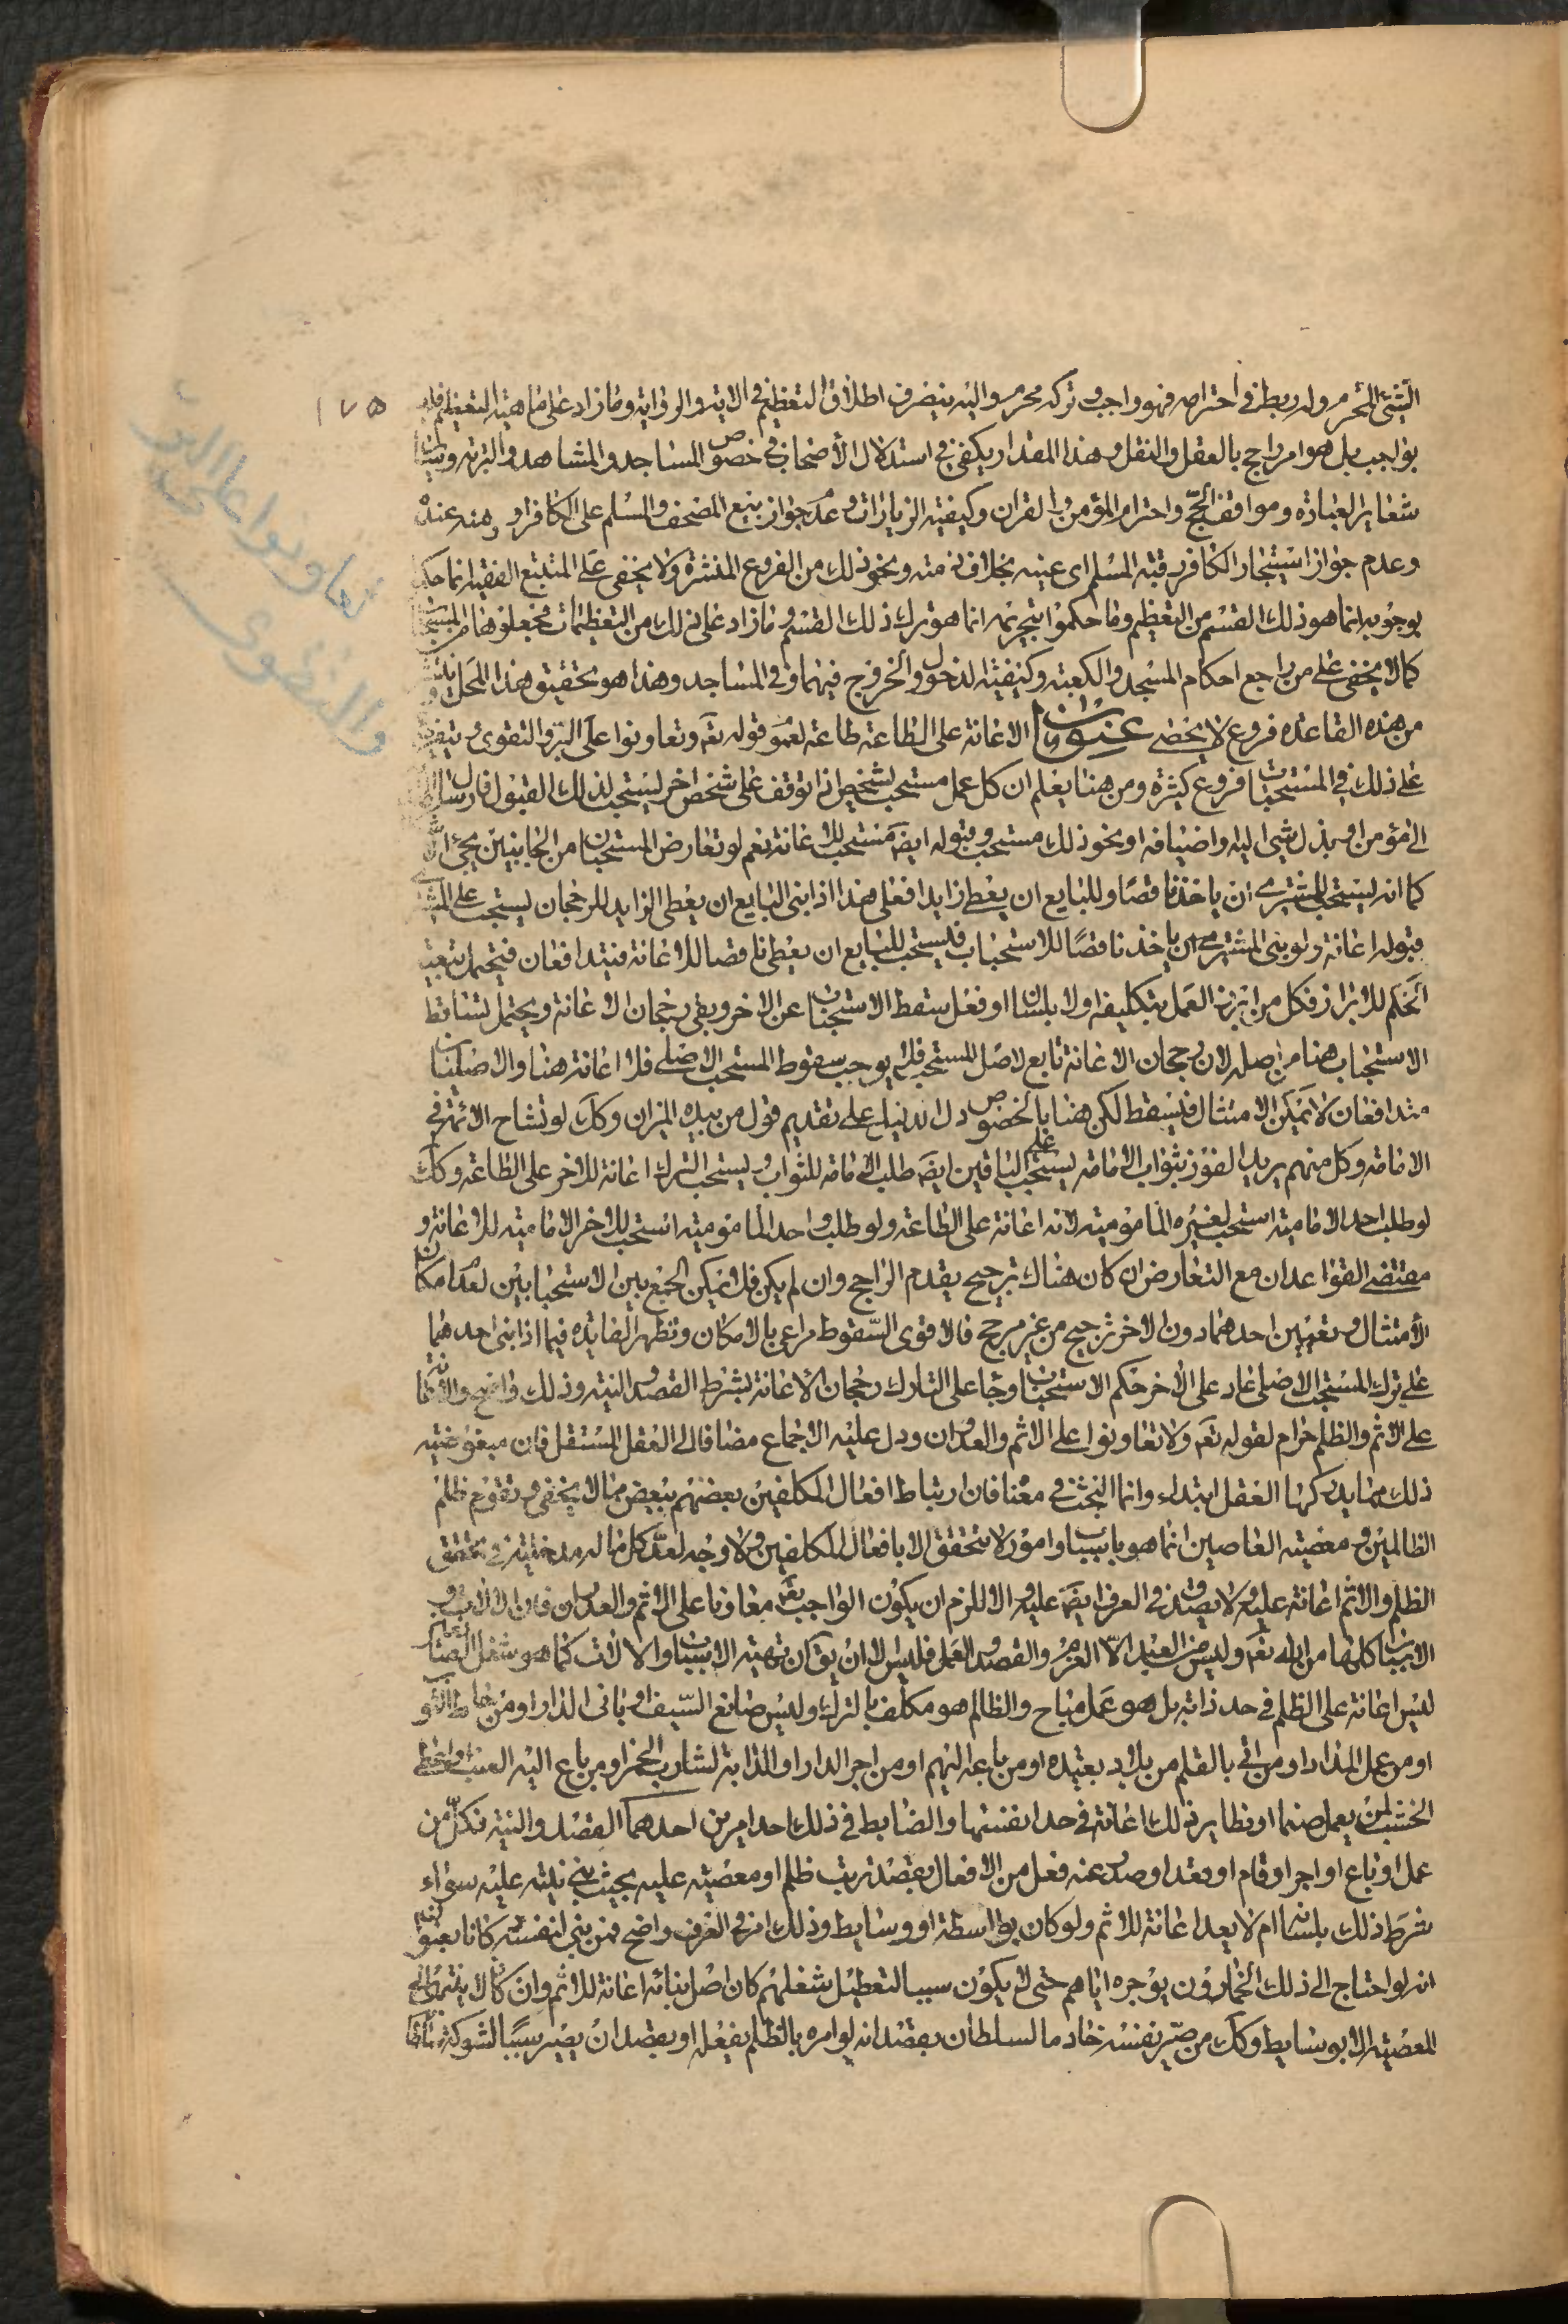 الشيئ المحرم وله ربط في احترامه فهو واجب وتركه محرم واليه ينصرف اطلاق التعظيم في الاية والرواية وما زاد على ماهية التعظيم فليس
بواجب بل هو امر راجح بالعقل والنقل وهذا المقدار يكفى في استدلال الأصحاب في خصوص المساجد والمشاهد والتربة
شعاير العبادة ومواقف الحج واحترام المؤمن والقران وكيفية الزيارات وعدم جواز بيع المصحف والمسلم على الكافر او رهنه عنده
وعدم جواز استيجار الكافر رقبة المسلم اى عينه بخلاف ذمته ونحو ذلك من الفروع المنتشرة ولا يخفى على المتتبع الفقيه انما حكموا
بوجوبه انما هو ذلك القسم من التعظيم وما حكموا بتحريمه انما هو ترك ذلك القسم وما زاد على ذلك من التعظيمات فجعلوها من المستحبات
كما لا يخفى على من راجع احكام المسجد والكعبة وكيفية الدخول والخروج فيهما وفي المساجد وهذا هو تحقيق هذا المحل
من هذه القاعدة فروع لا تحصى عنوان الاعانة على الطاعة طاعة لعموم قوله تعَ وتعاونوا على البر والتقوى ويتفرع
على ذلك في المستحبات فروع كثيرة ومن هنا يعلم ان كل عمل مستحب لشخص اذا توقف على شخص اخر يستحب لذلك القبول فارسال
الى مؤمن او بذل شيئ اليه واضيافه او نحو ذلك مستحب وقبوله ايضَ مستحب للاعانة نعم لو تعارض المستحبان من الجانبين يجئ
كما انه يستحب للمشترى ان ياخذ ناقصا وللبايع ان يعطى زايدا فعلى هذا اذا بنى البايع ان يعطى الزايد للرجحان يستحب على المشترى
قبوله اعانة ولو بنى المشترى ان ياخذ ناقصًا للاستحباب فيستحب للبايع ان يعطى ناقصا للاعانة فيتدافعان فيحتمل تبعية
الحكم للابراز فكل من ابرز العمل بتكليفه اولا بلسان او فعل سقط الاستحباب عن الاخر وبقى رجحان الاعانة ويحتمل تساقط
الاستحباب هنا من اصله لان رجحان الاعانة تابع لاصل المستحب فلا يوجب سقوط المستحب الاصلى فلا اعانة هنا والاصليان
متدافعان لا يمكن الامتثال فيسقط لكن هنا بالخصوص دل الدليل على تقديم قول من بيده الميزان وكك لو تشاح الائمة في
الامامة وكل منهم يريد الفوز بثواب الامامة يستحب على الباقين ايضَ طلب الامامة للثواب ويستحب الترك اعانة للاخر على الطاعة وكك
لو طلب احد الامامية استحب لغيره المامومية لانه اعانة على الطاعة ولو طلب واحد المامومية استحب للاخر الامامية للاعانة و
مقتضى القواعد ان مع التعارض ان كان هناك ترجيح يقدم الراجح وان لم يكن فلا يمكن الجمع بين الاستحبابين لعدم امكان
الأمتثال وتعيين احدهما دون الاخر ترجيح من غير مرجح فالاقوى السّقوط مراعى بالامكان وتظهر الفايدة فيما اذا بنى احدهما
على ترك المستحب الاصلى عاد على الاخر حكم الاستحباب وجاء على التارك رجحان الاعانة بشرط القصد والنية وذلك واضح والاعانة
على الاثم والظلم حرام لقوله تعَ ولا تعاونوا على الاثم والعدوان ودل عليه الاجماع مضافا الى العقل المستقل فان مبغوضية
ذلك مما يدركها العقل ابتداء وانما البحث في معناه فان ارتباط افعال المكلفين بعضهم ببعض مما لا يخفى وتقوم ظلم
الظالمين ومعصية العاصين انما هو باسباب وامور لا تتحقق الا بافعال المكلفين ولا وجه لعدّ كل ماله مدخلية في تحقق
الظلم والاثم اعانة عليه ولا يصدق في العرف ايضَ عليه والا للزم ان يكون الواجب تعَ معاونا على الاثم والعدوان فان الالات و
الاسباب كلها من الله تعَ وليس من العبد الّا العزم والقصد والعمل فليس الا ان يقَ ان تهية الاسباب والالات كما هو شغل اهل الصنايع
ليس اعانة على الظلم في حد ذاته بل هو عمل مباح والظالم هو مكلف بالترك وليس صانع السّيف او بانى الدار او من خاط الثوب
او من عمل المداد او من اتى بالقلم من بلاد بعيدة او من باعه اليهم او من اجر الدار او الدابة لشارب الخمر او من باع اليه العنب او اعطى
الخشب لمن يعمل صنما او نظاير ذلك اعانة في حد انفسها والضابط في ذلك احد امرين احدهما القصد والنية فكل من
عمل او باع او اجر او قام او قعد او صدر عنه فعل من الافعال بقصد ترتب ظلم او معصية عليه بحيث بنى نيته عليه سواء
شرط ذلك بلسانه ام لا يعد اعانة للاثم ولو كان بواسطة او وسايط وذلك امر في العرف واضح فمن بنى لنفسه كانا بعنوان
انه لو احتاج الى ذلك الخمارون يوجره اياهم حتى لا يكون سببا لتعطيل شغلهم كان اصل بنائه اعانة للاثم وان كان لا ينتهى الى
المعصية الا بوسايط وكك من صيّر نفسه خادما لسلطان بقصد انه لو امره بالظلم يفعله او بقصد ان يصير سببًا لشوكة
١٧٥
تعاونوا على البر
والتقوى